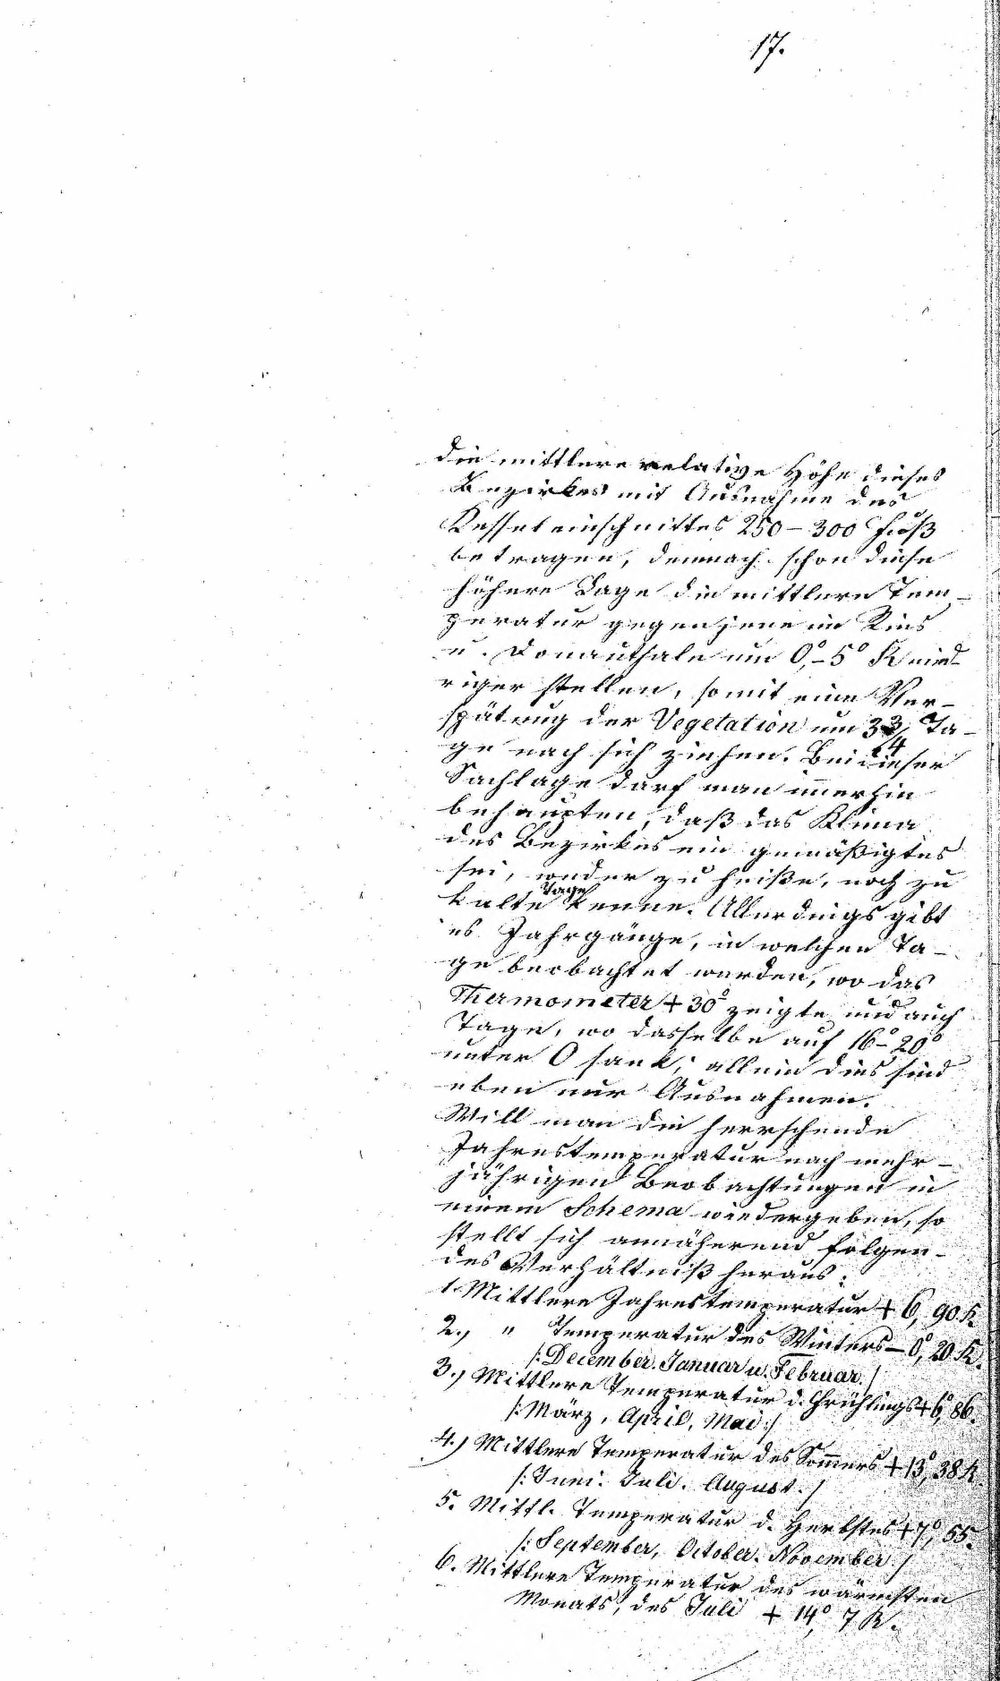 17.
die mittlere relative Höhe dieses
Bezirkes mit Ausnahme des
Kesseleinschnittes 250 – 300 Fuß
betragen, demnach schon diese
höhere Lage die mittlere Tem-
peratur gegen jene im Ries
u. Donauthale um 0°,–5° R nied-
riger stellen, somit eine Ver-
spätung der Vegetation um 3 3/4 Ta-
ge nach sich ziehen. Bei dieser
Sachlage darf man im̄erhin
behaupten, daß das Klima
des Bezirkes ein gemäßigtes
sei, weder zu heiße, noch zu
kalte Tage kenne. Allerdings gibt
es Jahrgänge, in welchen Ta-
ge beobachtet werden, wo das
Thermometer + 30° zeigte und auch
Tage, wo dasselbe auf 16°–20°
unter 0 sank; allein dies sind
eben nur Ausnahmen.
Will man die herrschende
Jahrestemperatur nach mehr-
jährigen Beobachtungen in
einem Schema wiedergeben, so
stellt sich annäherend folgen-
des Verhältniß heraus:
1. Mittlere Jahrestemperatur + 6°, 90 R
2., " Temperatur des Winters – 0°, 20 R.
/: December. Januar u. Februar. /
3., Mittlere Temperatur d. Frühlings + 6°, 86.
/: März, April, Mai :/
4., Mittlere Temperatur des Som̄ers + 13°, 38 R.
/: Juni. Juli. August. /
5. Mittl. Temperatur d. Herbstes + 7°, 55.
/: September, October. November /
6. Mittlere Temperatur des wärmsten
Monats, des Juli + 14°, 7 R.